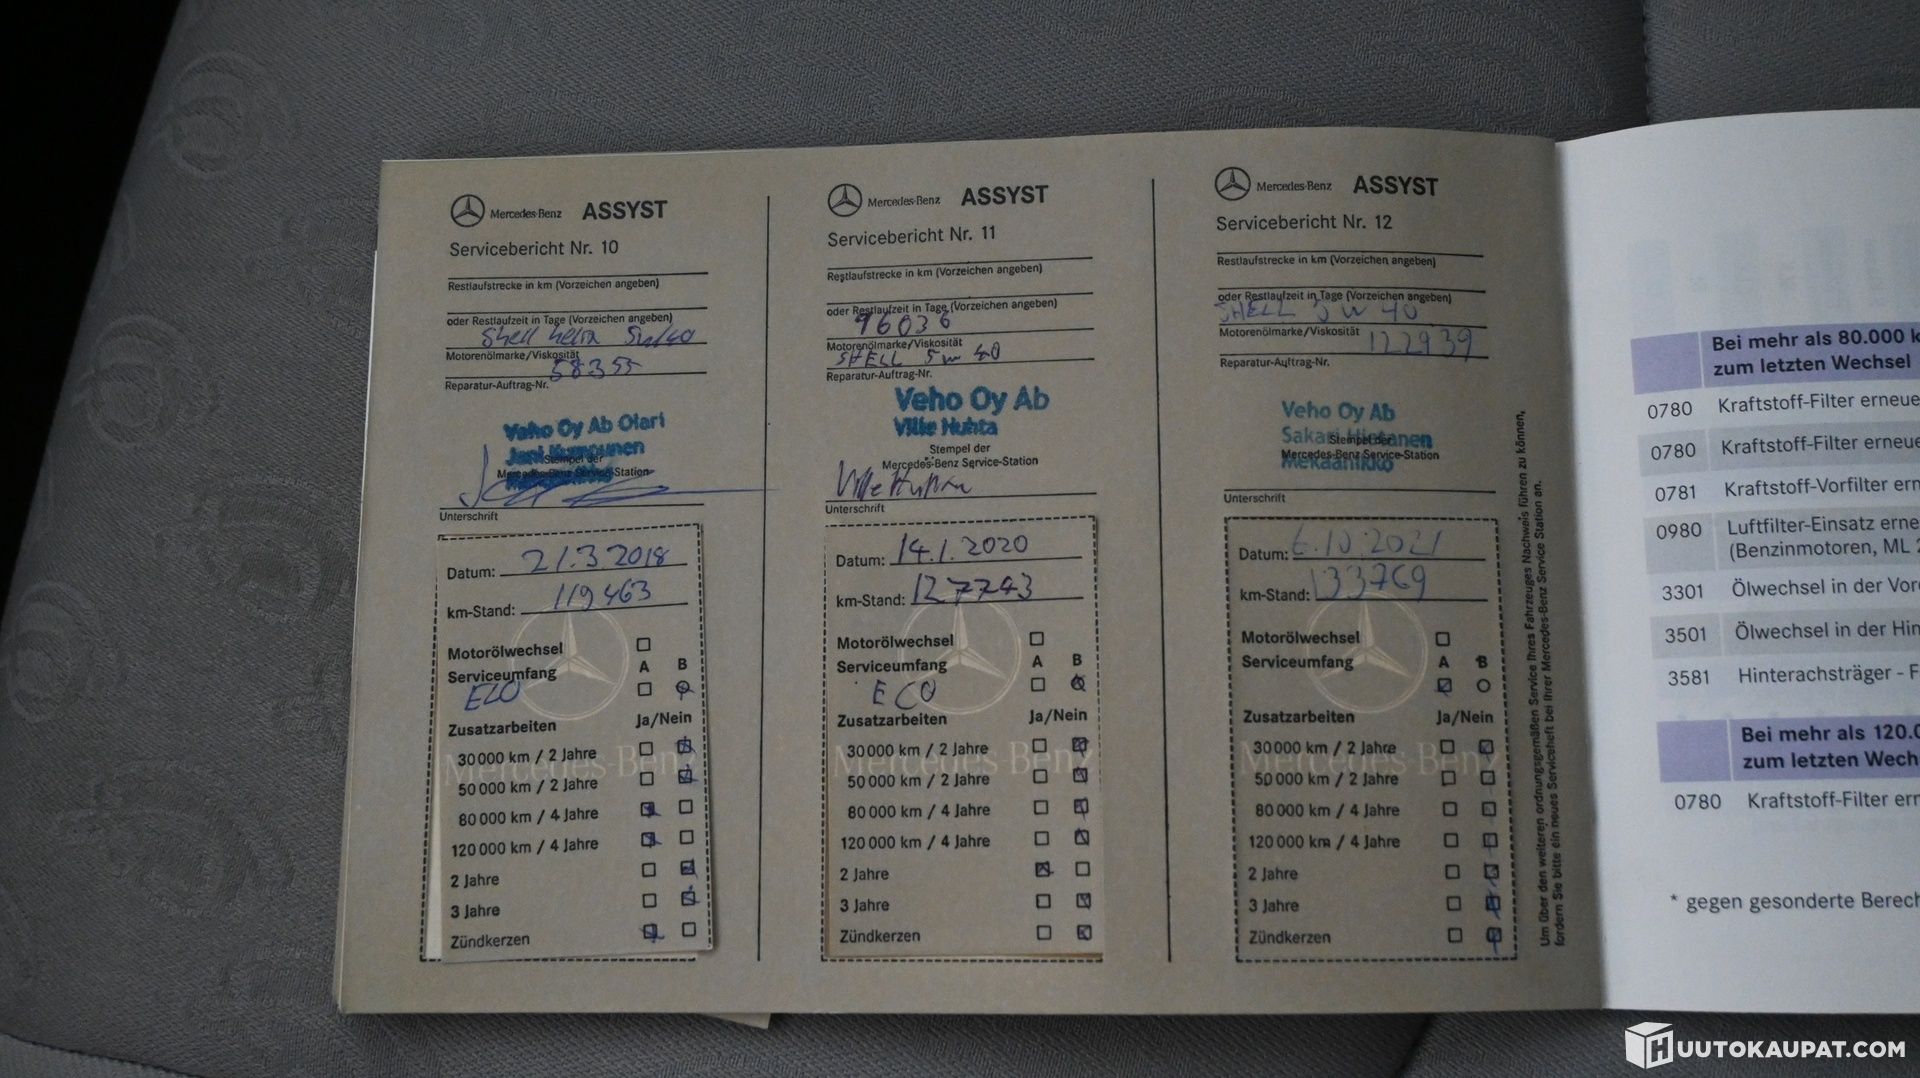 Mercedes-Benz ASSYST
Servicebericht Nr. 10
Restlaufstrecke in km (Vorzeichen angeben)
oder Restlaufzeit in Tage (Vorzeichen angeben)
Shell helix 5w40
Motorenölmarke/Viskosität
58355
Reparatur-Auftrag-Nr.
Veho Oy Ab Olari
Jani
Stempel der
Mercedes-Benz Service-Station
Unterschrift
Datum: 21.3.2018
km-Stand: 119463
Motorölwechsel
Serviceumfang A B
ECO
Zusatzarbeiten Ja/Nein
30000 km / 2 Jahre
50000 km / 2 Jahre
80000 km / 4 Jahre
120000 km / 4 Jahre
2 Jahre
3 Jahre
Zündkerzen
Mercedes-Benz
Mercedes-Benz ASSYST
Servicebericht Nr. 11
Restlaufstrecke in km (Vorzeichen angeben)
oder Restlaufzeit in Tage (Vorzeichen angeben)
96036
Motorenölmarke/Viskosität
SHELL 5w40
Reparatur-Auftrag-Nr.
Veho Oy Ab
Ville Huhta
Stempel der
Mercedes-Benz Service-Station
Ville Huhta
Unterschrift
Datum: 14.1.2020
km-Stand: 127743
Motorölwechsel
Serviceumfang A B
ECO
Zusatzarbeiten Ja/Nein
30000 km / 2 Jahre
50000 km / 2 Jahre
80000 km / 4 Jahre
120000 km / 4 Jahre
2 Jahre
3 Jahre
Zündkerzen
Mercedes-Benz
Mercedes-Benz ASSYST
Servicebericht Nr. 12
Restlaufstrecke in km (Vorzeichen angeben)
oder Restlaufzeit in Tage (Vorzeichen angeben)
SHELL 5W40
Motorenölmarke/Viskosität
122939
Reparatur-Auftrag-Nr.
Veho Oy Ab
Sakari Hietanen
Stempel der
Mercedes-Benz Service-Station
Mekaanikko
Unterschrift
Datum: 6.10.2021
km-Stand: 133769
Motorölwechsel
Serviceumfang A B
Zusatzarbeiten Ja/Nein
30000 km / 2 Jahre
50000 km / 2 Jahre
80000 km / 4 Jahre
120000 km / 4 Jahre
2 Jahre
3 Jahre
Zündkerzen
Mercedes-Benz
Um über den weiteren ordnungsgemäßen Service Ihres Fahrzeuges Nachweis führen zu können,
fordern Sie bitte ein neues Serviceheft bei Ihrer Mercedes-Benz Service Station an.
Bei mehr als 80.000 k
zum letzten Wechsel
0780 Kraftstoff-Filter erneue
0780 Kraftstoff-Filter erneue
0781 Kraftstoff-Vorfilter ern
0980 Luftfilter-Einsatz erne
(Benzinmotoren, ML 2
3301 Ölwechsel in der Vor
3501 Ölwechsel in der Hin
3581 Hinterachsträger - F
Bei mehr als 120.0
zum letzten Wech
0780 Kraftstoff-Filter ern
* gegen gesonderte Berech
HUUTOKAUPAT.COM